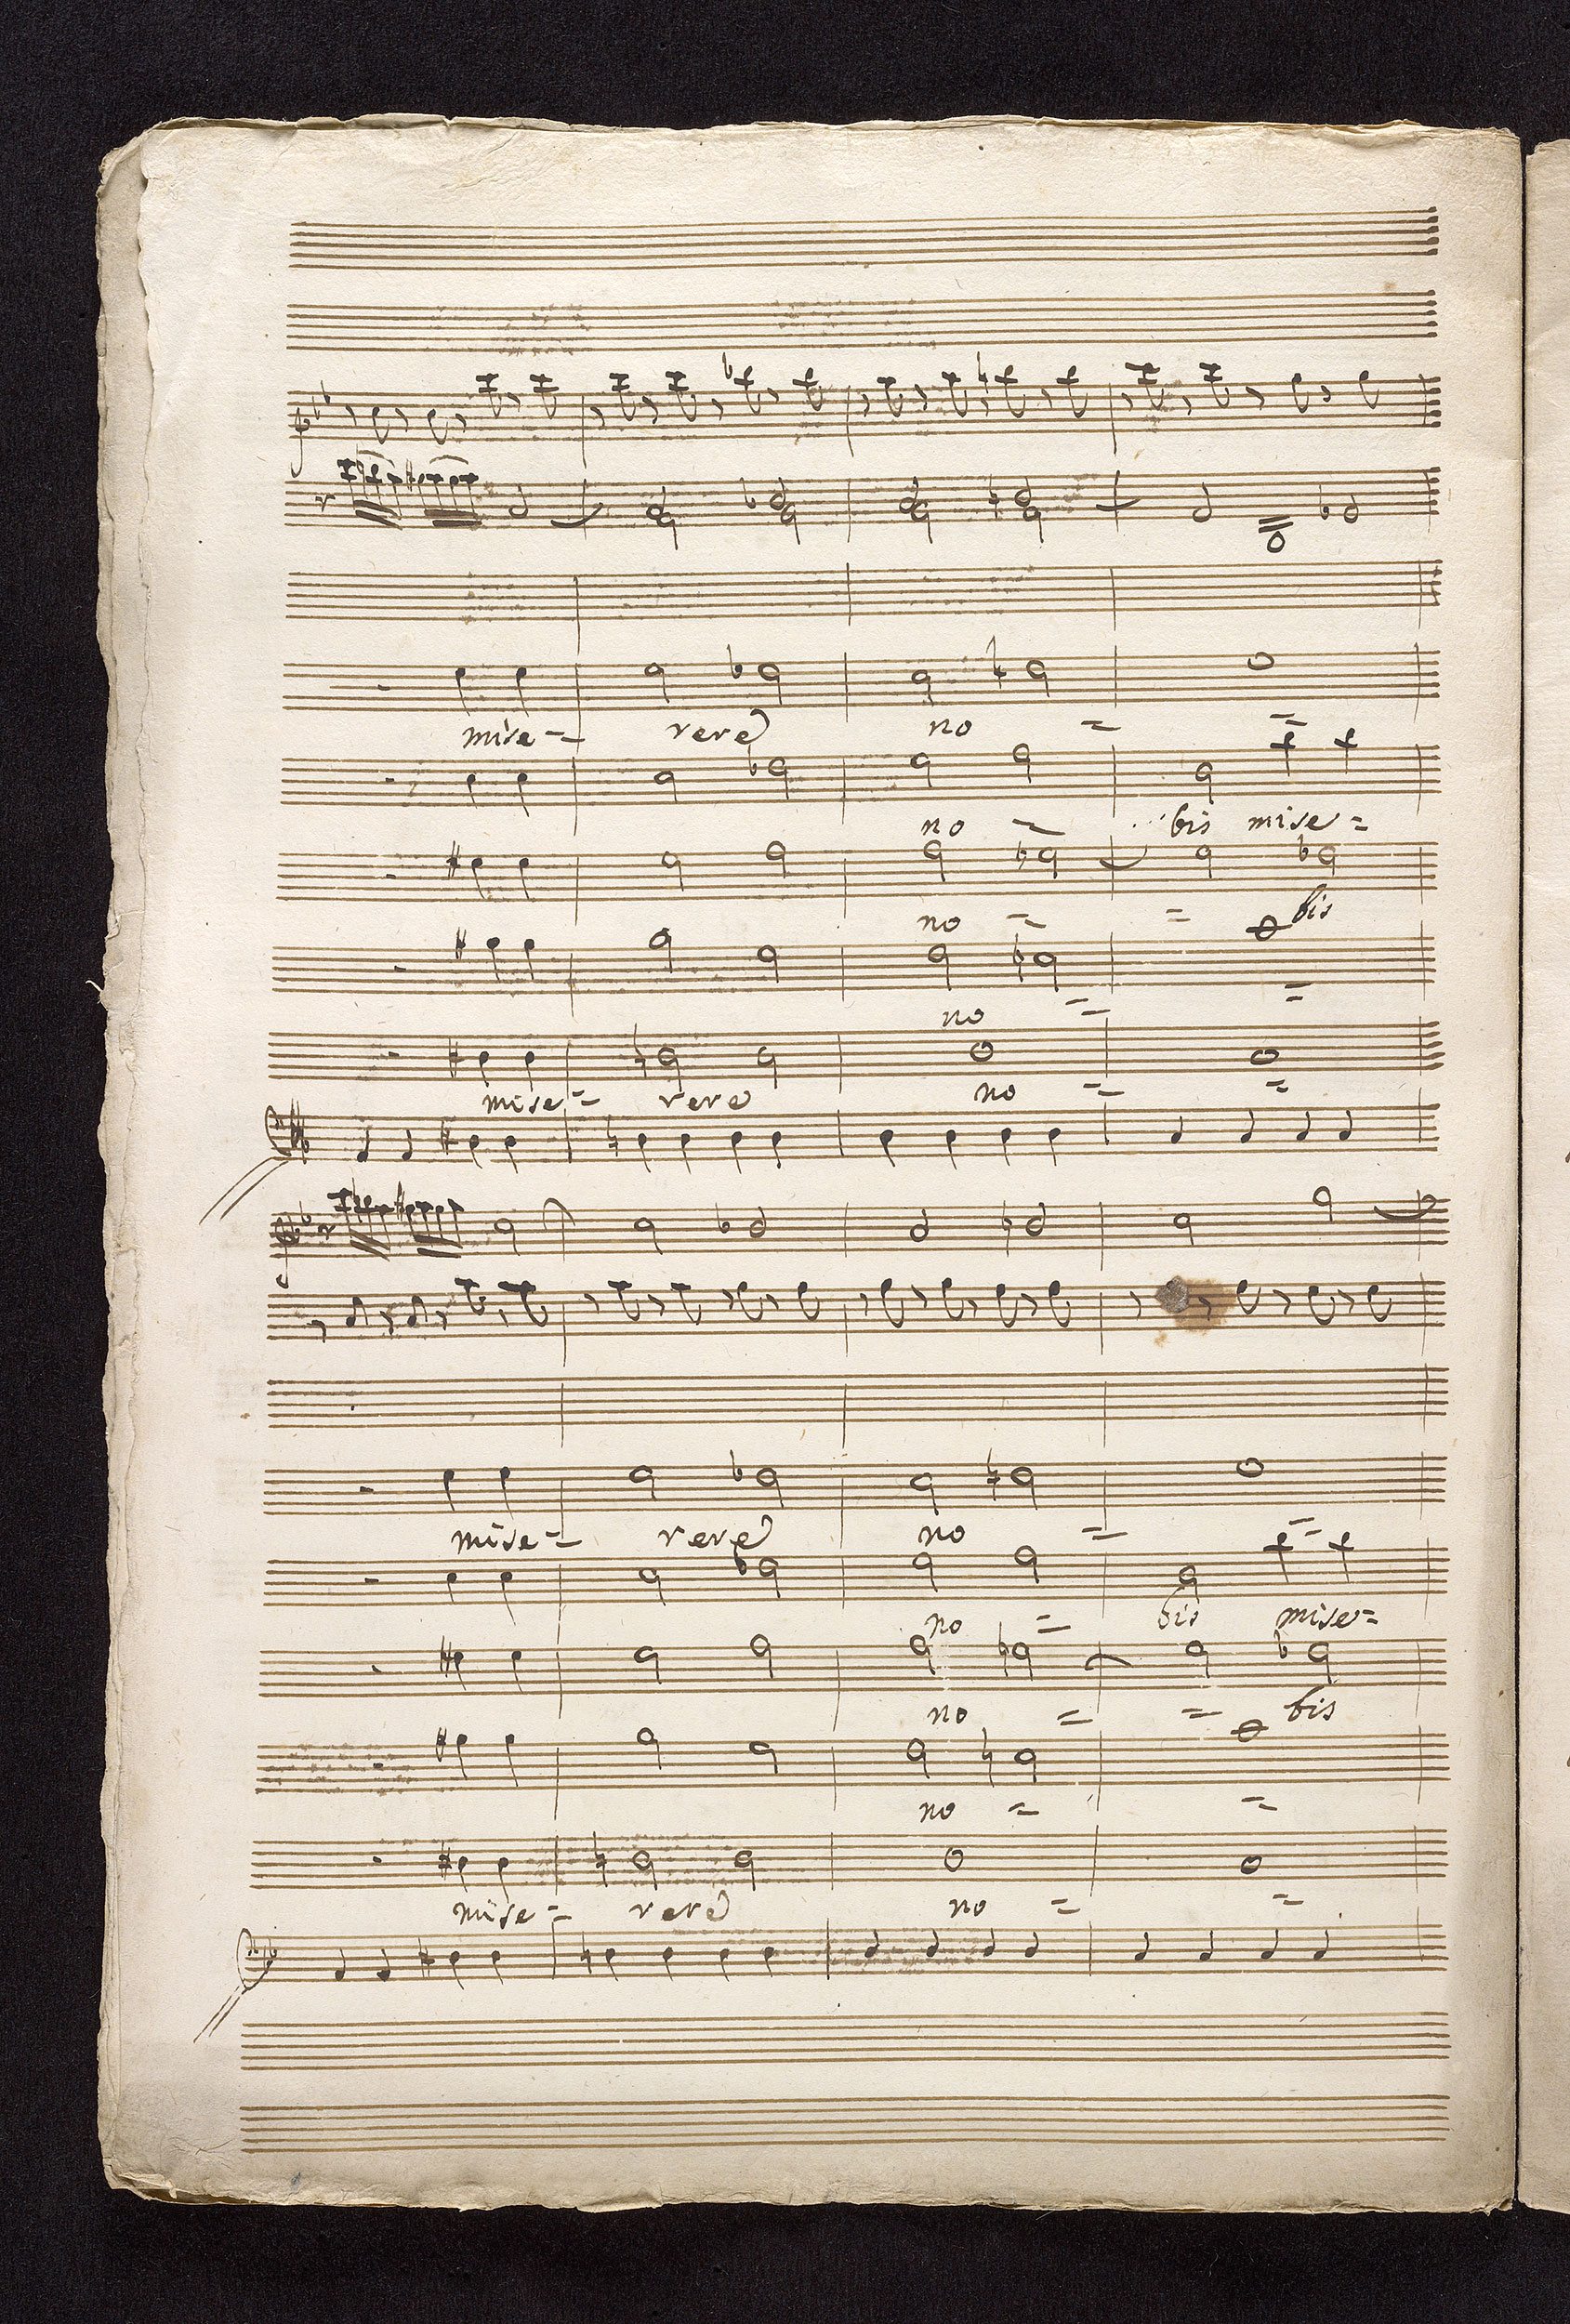 mise= rere no = =
no = bis mise=
no = = bis
no = =
mise= rere no = =
mise= rere no = =
no = bis mise=
no = = bis
no = =
mise= rere no = =